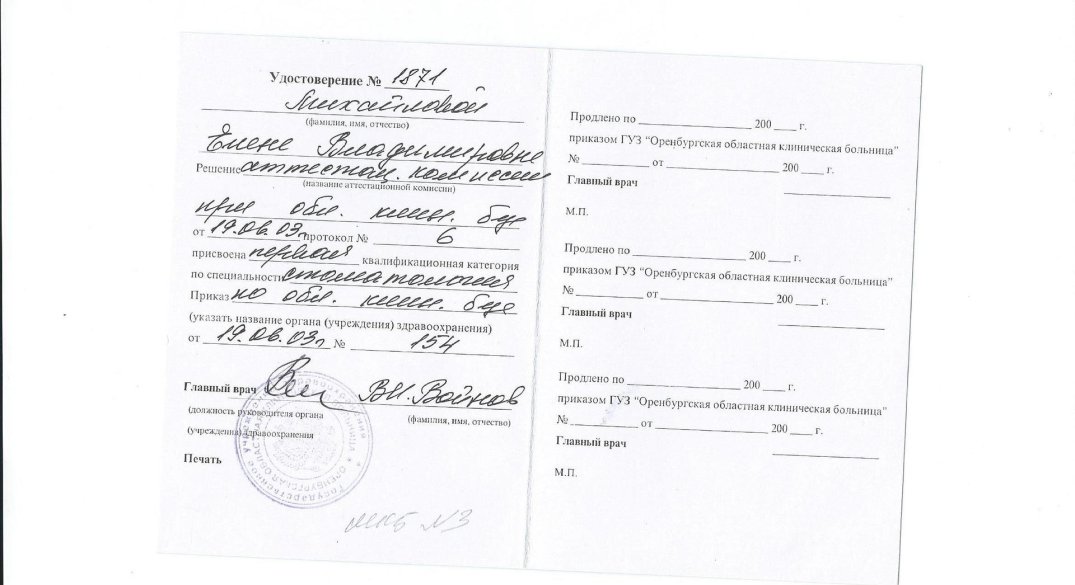 Удостоверение № 1871
Михайловой
(фамилия, имя, отчество)
Елене Владимировне
Решение аттестац. комиссии
(название аттестационной комиссии)
при обл. клин. б-це
от 19.06.03г. протокол № 6
присвоена первая квалификационная категория
по специальности стоматология
Приказ по обл. клин. б-це
(указать название органа (учреждения) здравоохранения)
от 19.06.03г. № 154
Главный врач В.И. Войнов
(должность руководителя органа (фамилия, имя, отчество)
(учреждения) здравоохранения
Печать
МКБ №3
Продлено по 200 г.
приказом ГУЗ “Оренбургская областная клиническая больница”
№ от 200 г.
Главный врач
М.П.
Продлено по 200 г.
приказом ГУЗ “Оренбургская областная клиническая больница”
№ от 200 г.
Главный врач
М.П.
Продлено по 200 г.
приказом ГУЗ “Оренбургская областная клиническая больница”
№ от 200 г.
Главный врач
М.П.